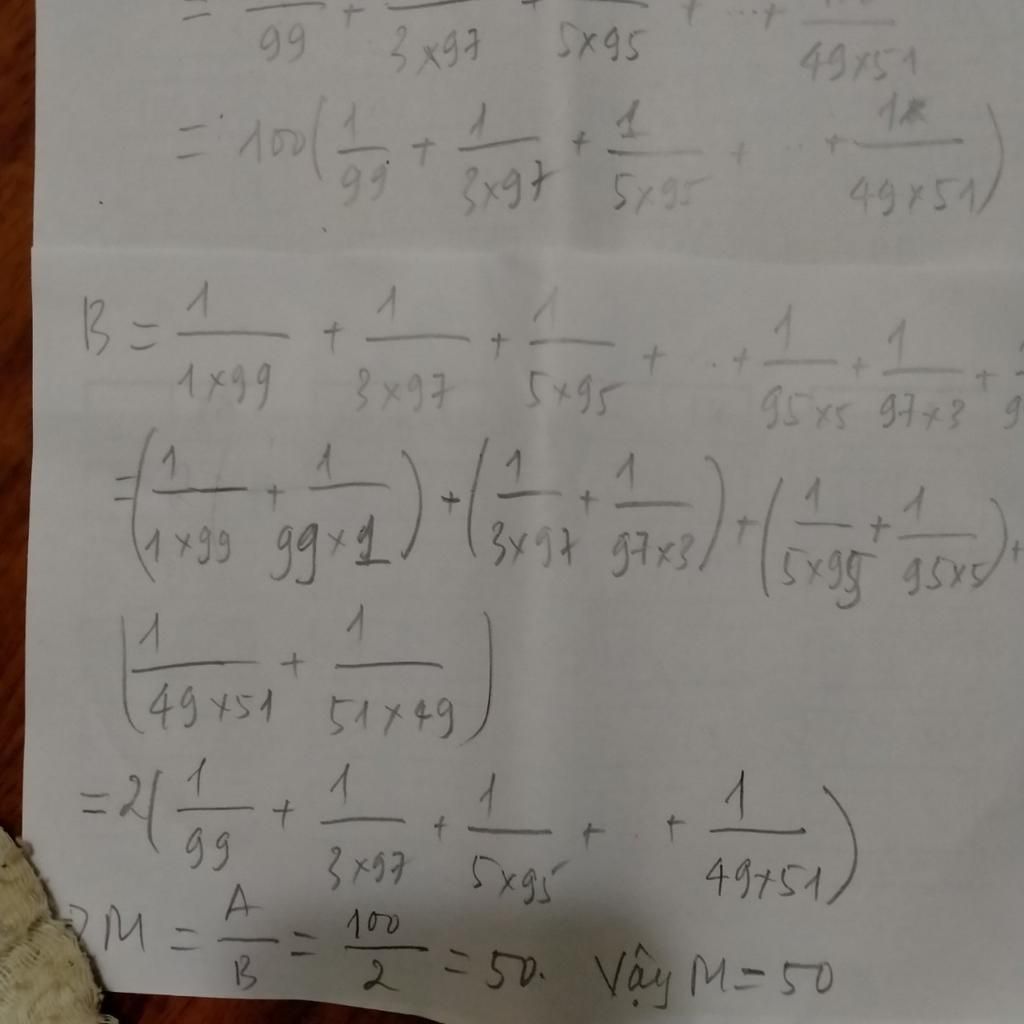 = /99 + /3×97 + /5×95 + ... + /49×51
= 100(1/99 + 1/3×97 + 1/5×95 + .. + 1/49×51)
B = 1/1×99 + 1/3×97 + 1/5×95 + ... + 1/95×5 + 1/97×3 +
=(1/1×99 + 1/99×1) + (1/3×97 + 1/97×3) + (1/5×95 + 1/95×5) +
(1/49×51 + 1/51×49)
=2(1/99 + 1/3×97 + 1/5×95 + .. + 1/49×51)
M = A/B = 100/2 = 50. Vậy M = 50